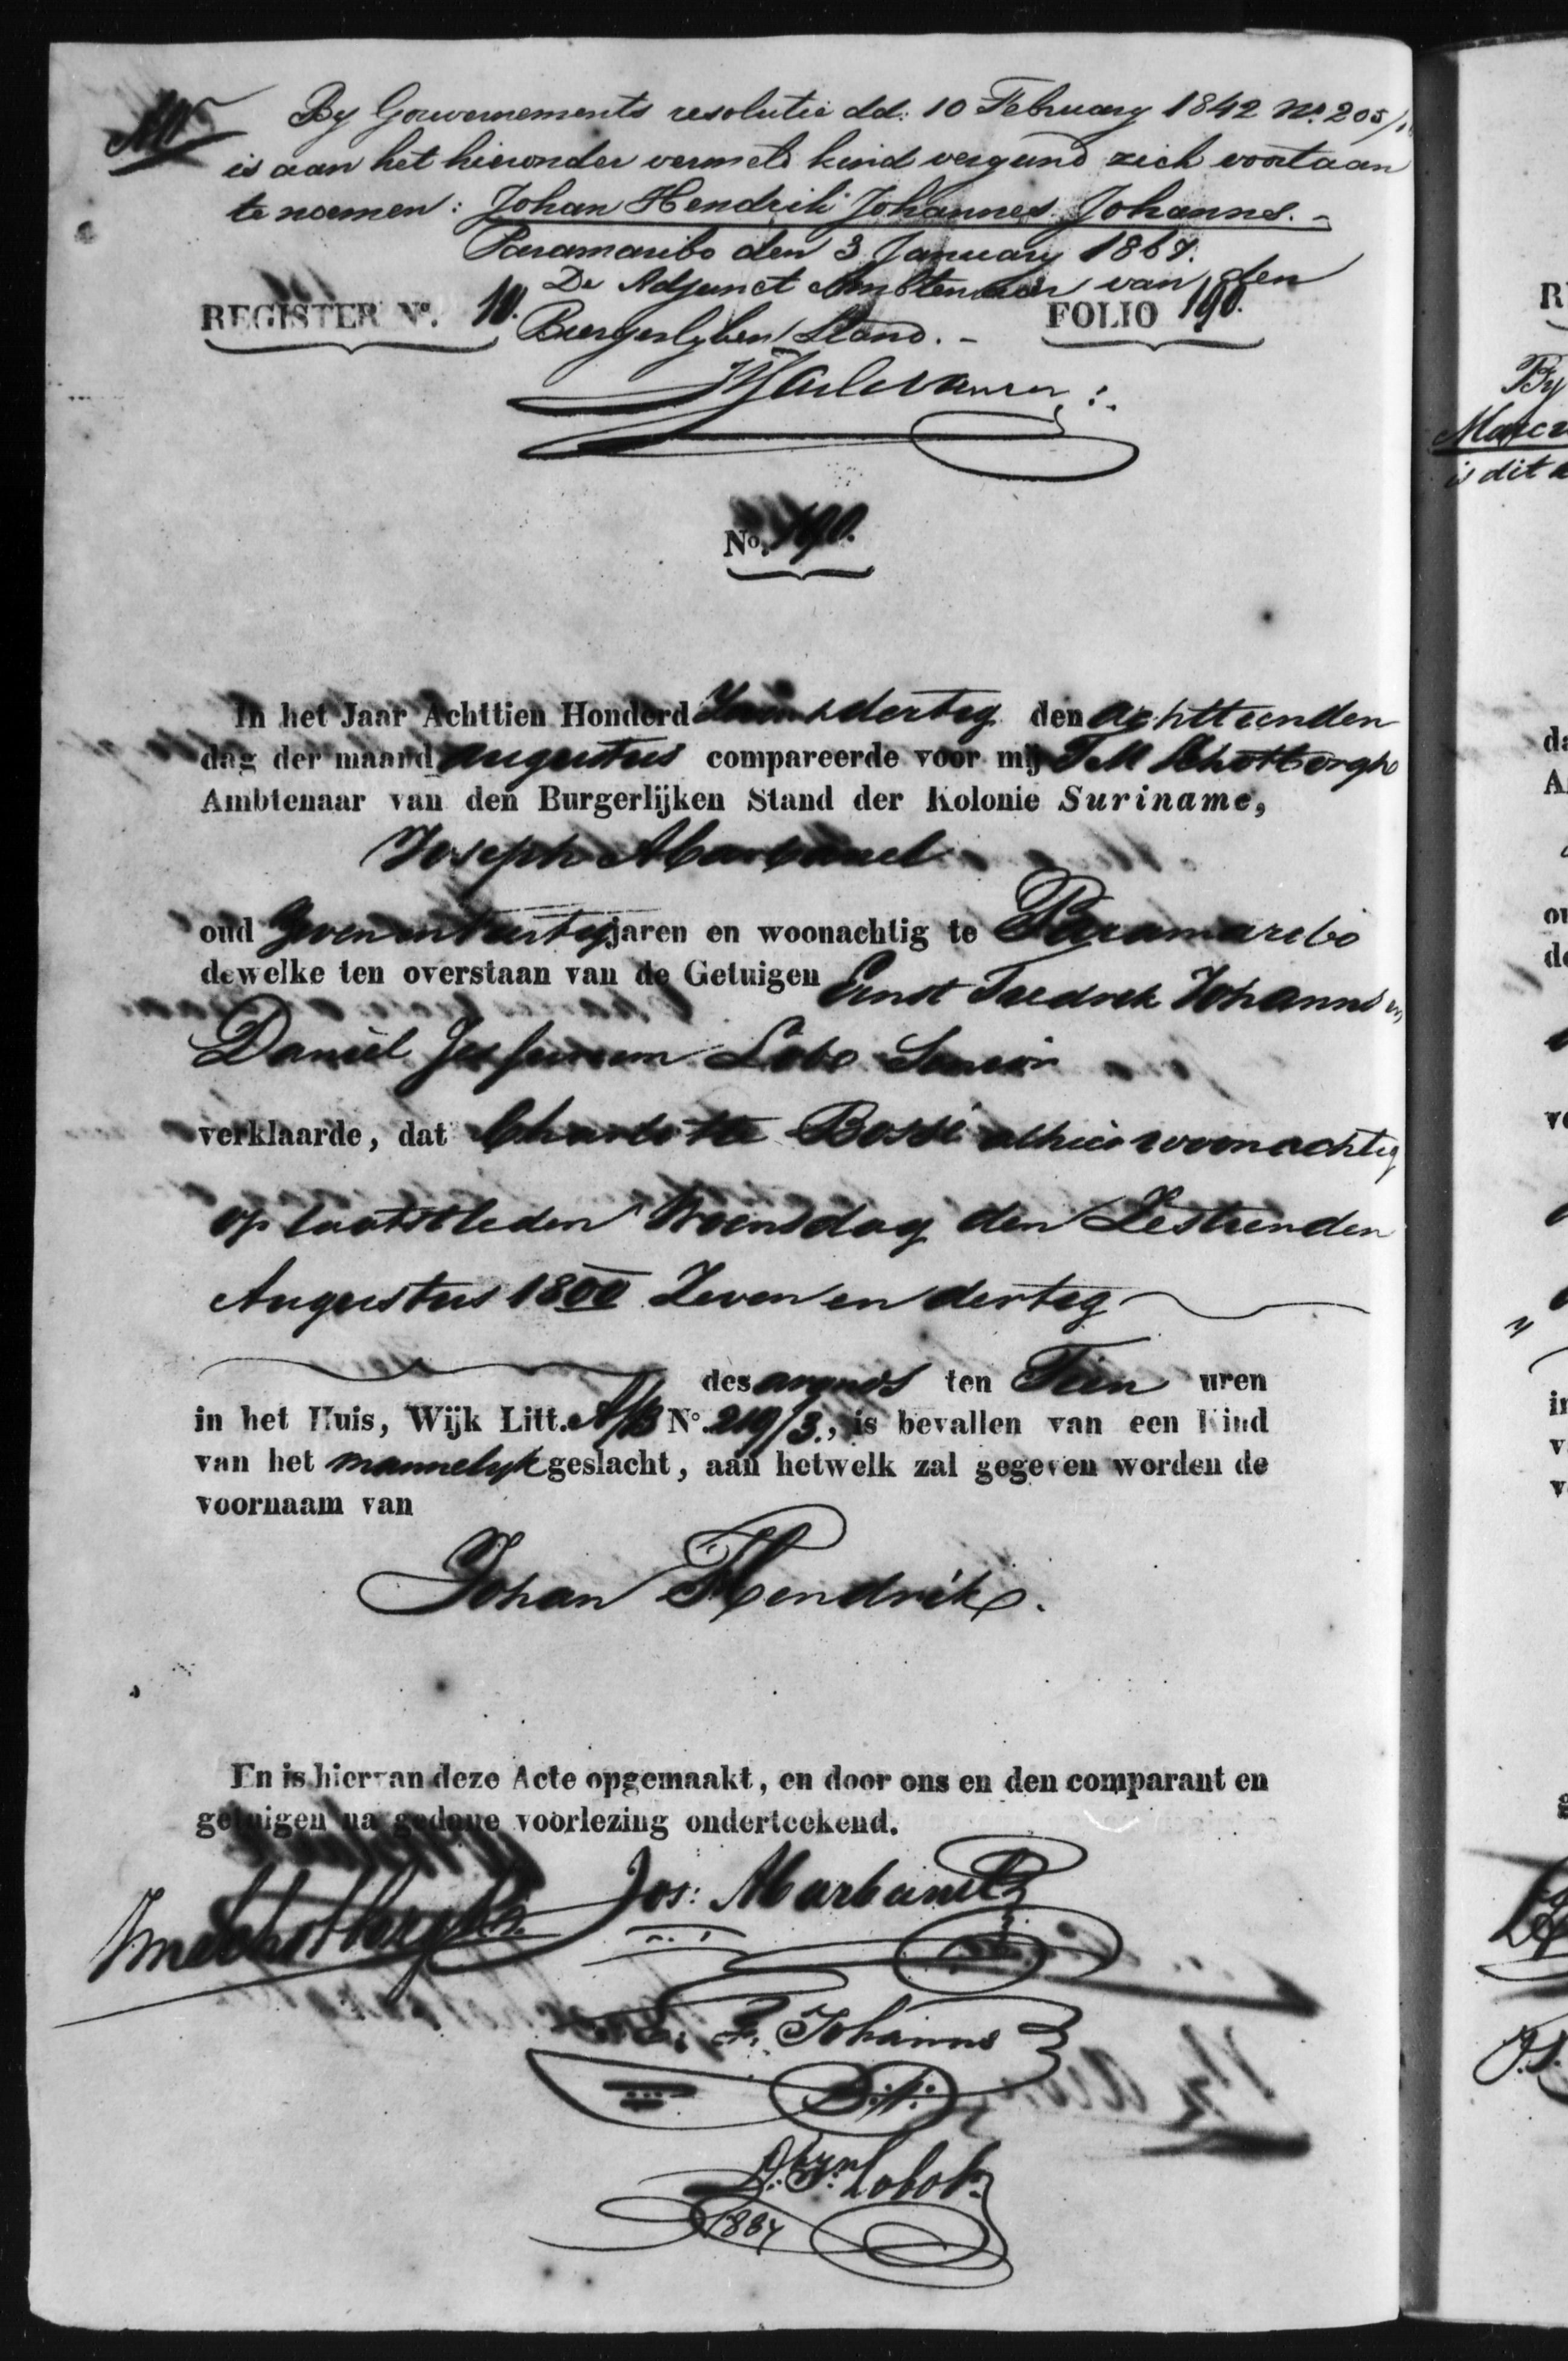 By Gouvernements resolutie dd: 10 February 1842 No. 205/
is aan het hieronder vermeld kind vergund zich voortaan
te noemen: Johan Hendrik Johannes Johanns. -
Paramaribo den 3 January 1867.
De Adjunct Ambtenaar van den
Burgerlyken Stand. -
REGISTER No. 10. FOLIO 190.
No. 190.
In het Jaar Achttien Honderd Zeven en dertig den achttienden
dag der maand Augustus compareerde voor mij Schotborgh
Ambtenaar van den Burgerlijken Stand der Kolonie Suriname,
Joseph Abarbanel
oud jaren en woonachtig te Paramaribo
dewelke ten overstaan van de Getuigen Ernst Fredrik Johanns en
Daniel Jessurun Lobo Senior
verklaarde, dat Charlotte Bossé alhier woonachtig
op laatstleden Woensdag den Zestienden
Augustus 1800 Zeven en dertig
des avonds ten Tien uren
in het Huis, Wijk Litt. A/B No. 219/3., is bevallen van een Kind
van het mannelyk geslacht, aan hetwelk zal gegeven worden de
voornaam van
Johan Hendrik.
En is hiervan deze Acte opgemaakt, en door ons en den comparant en
getuigen na gedane voorlezing onderteekend.
Schotborgh Jos: Abarbanel
E. F. Johanns
D. Jn. Lobo